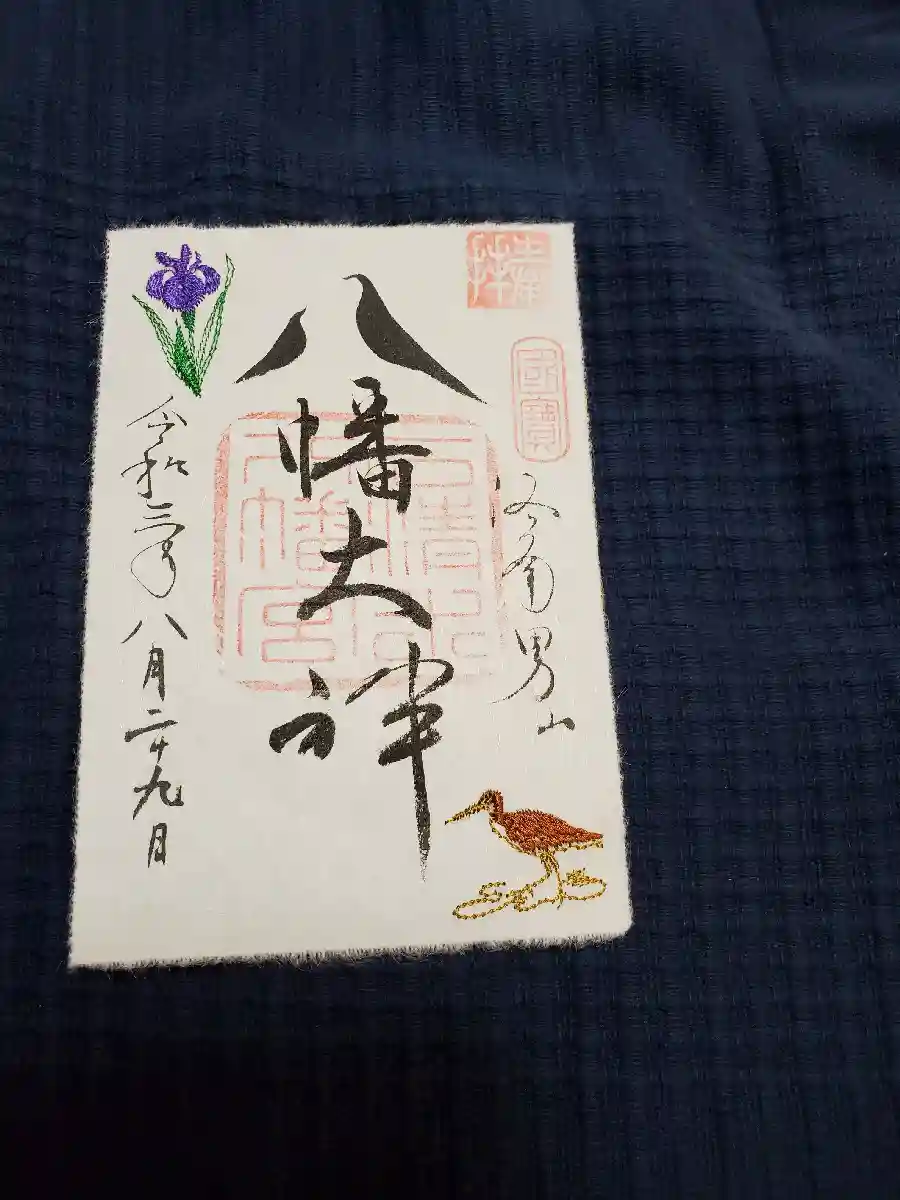 奉拝
國寶
洛南男山
八幡大神
石清水八幡宮
令和三年八月二十九日